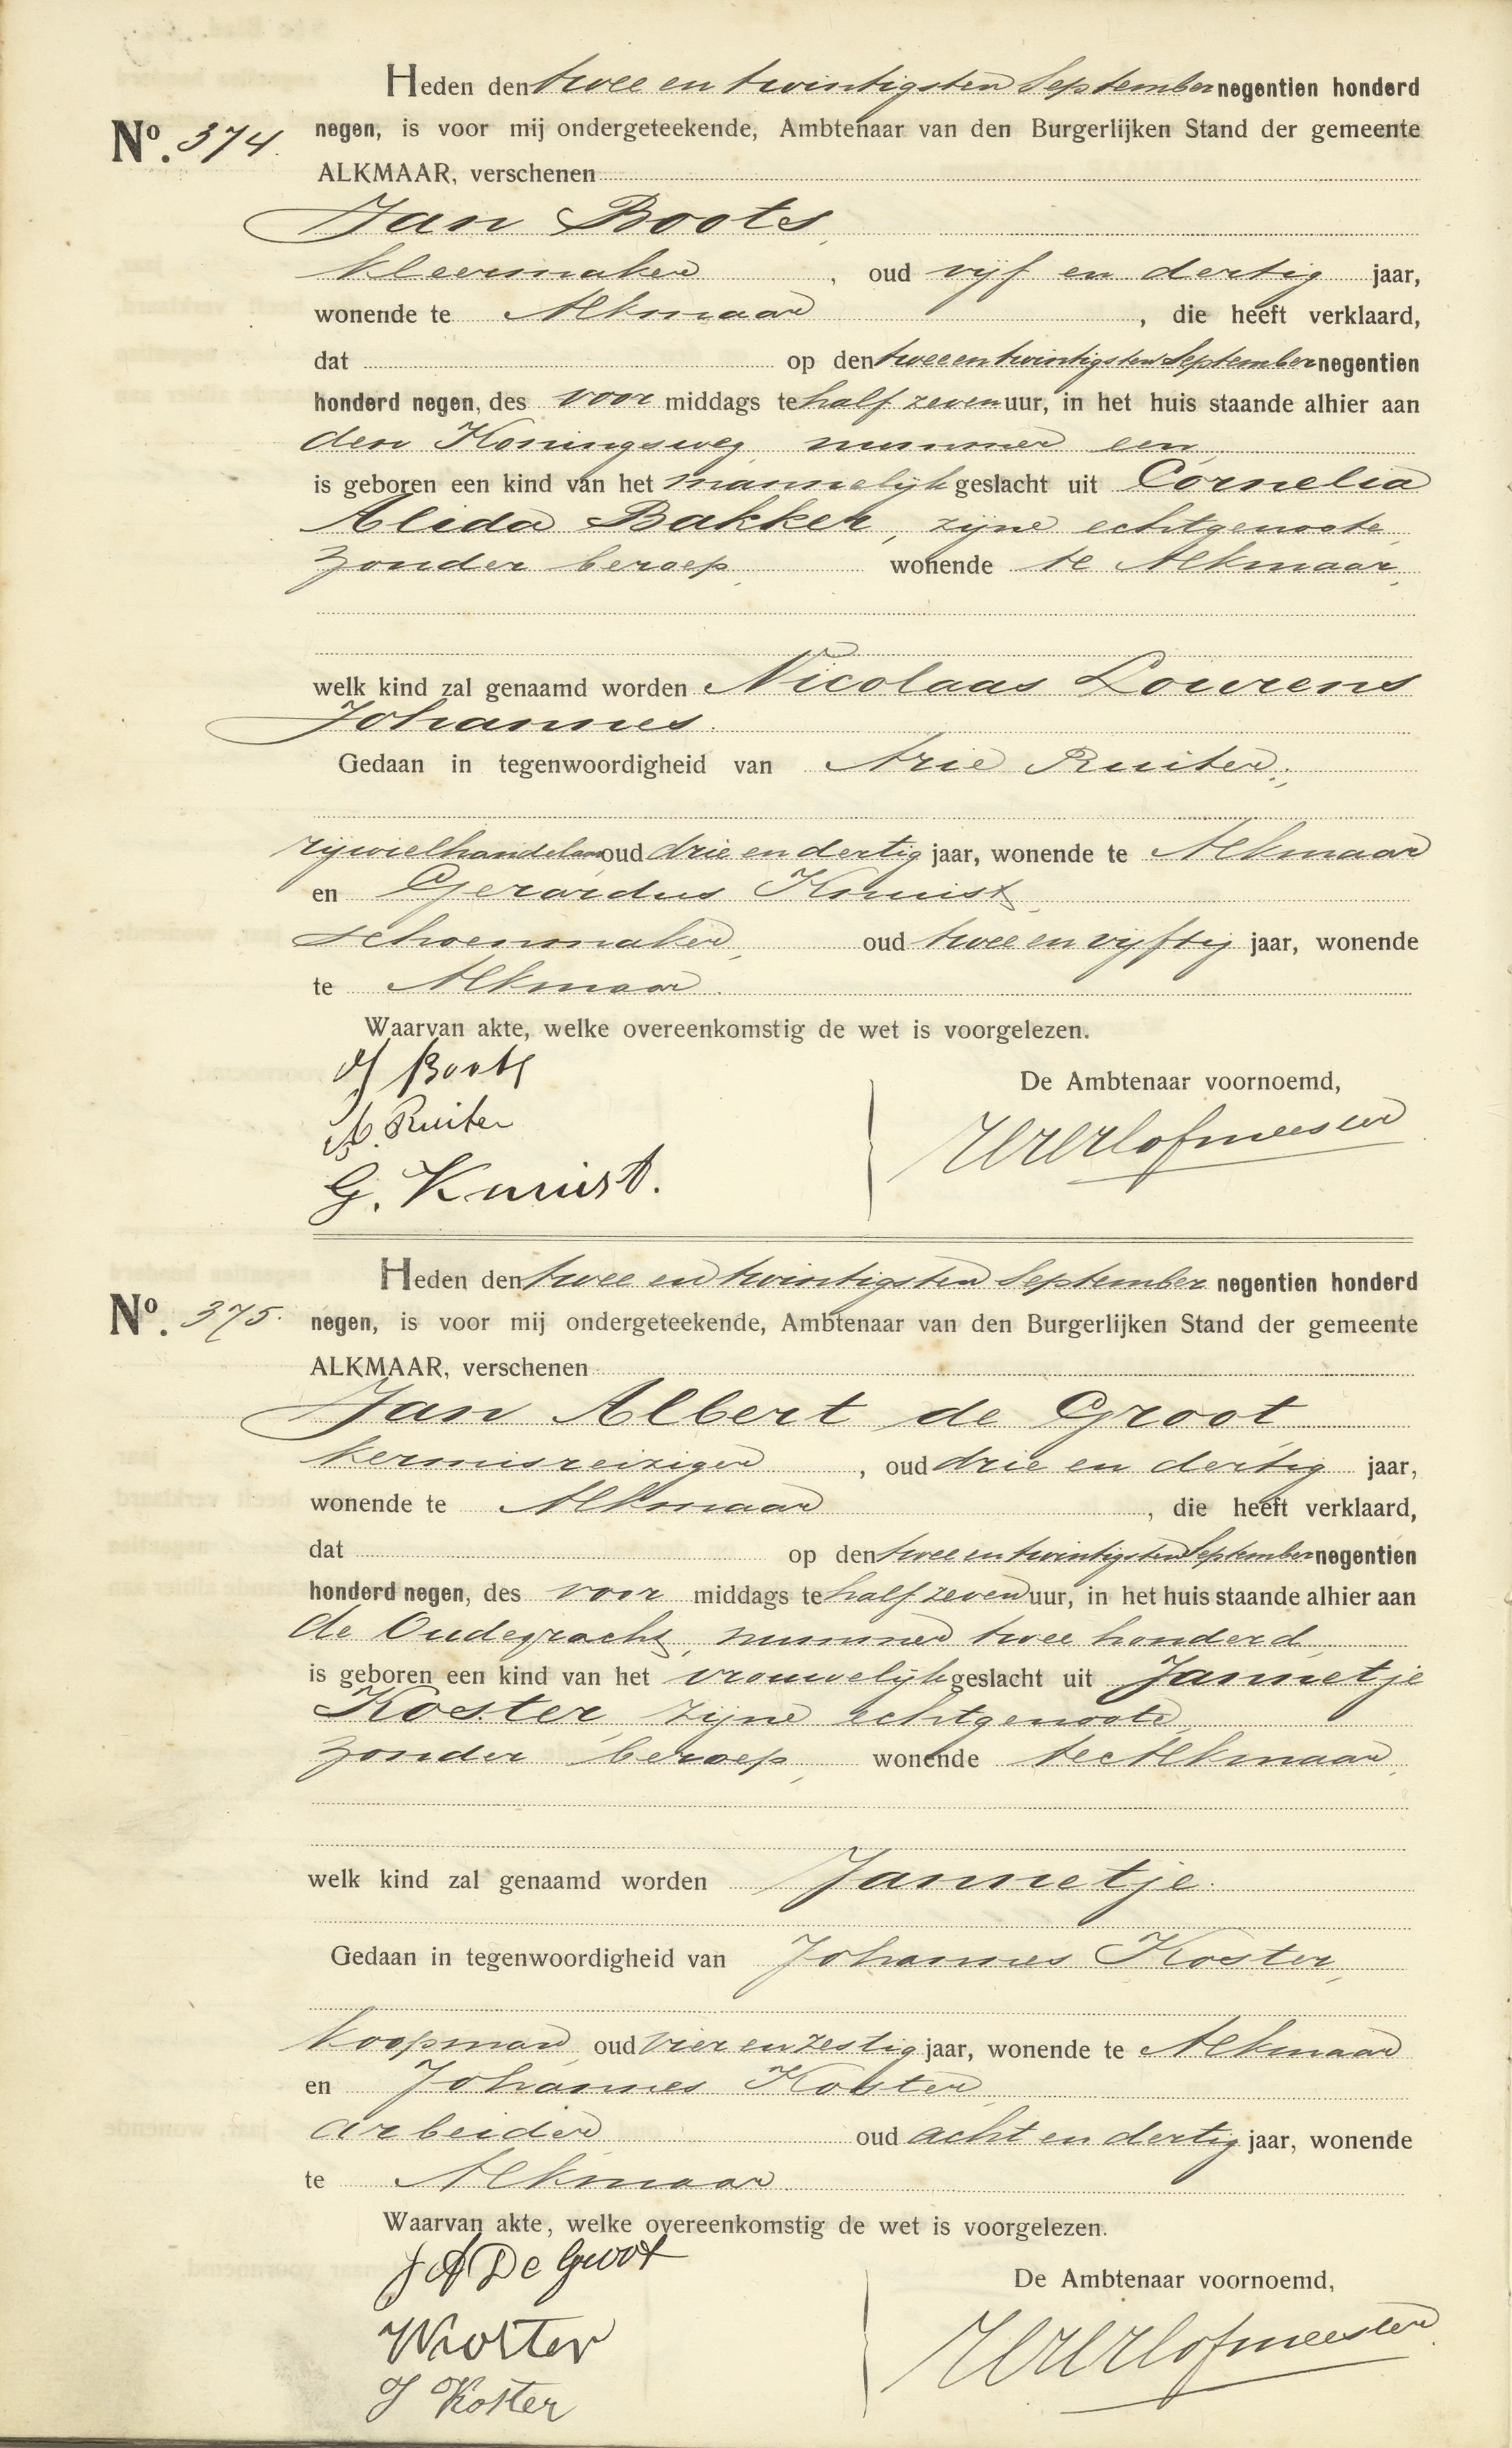 Heden den twee en twintigsten September negentien honderd
No. 374. negen, is voor mij ondergeteekende, Ambtenaar van den Burgerlijken Stand der gemeente
ALKMAAR, verschenen
Jan Boots,
kleermaker, oud vijf en dertig jaar,
wonende te Alkmaar, die heeft verklaard,
dat op den twee en twintigsten September negentien
honderd negen, des voor middags te half zeven uur, in het huis staande alhier aan
den Koningsweg, nummer een,
is geboren een kind van het mannelijk geslacht uit Cornelia
Alida Bakker, zijne echtgenoote,
zonder beroep, wonende te Alkmaar,
welk kind zal genaamd worden Nicolaas Lourens
Johannes.
Gedaan in tegenwoordigheid van Arie Ruiter,
rijwielhandelaar oud drie en dertig jaar, wonende te Alkmaar
en Gerardus Kmuist,
schoenmaker, oud twee en vijftig jaar, wonende
te Alkmaar.
Waarvan akte, welke overeenkomstig de wet is voorgelezen.
J Boots
De Ambtenaar voornoemd,
A. Ruiter
G. Kmuist.
Heden den twee en twintigsten September negentien honderd
No. 375. negen, is voor mij ondergeteekende, Ambtenaar van den Burgerlijken Stand der gemeente
ALKMAAR, verschenen
Jan Albert de Groot
kermisreiziger, oud drie en dertig jaar,
wonende te Alkmaar, die heeft verklaard,
dat op den twee en twintigsten September negentien
honderd negen, des voor middags te half zeven uur, in het huis staande alhier aan
de Oudegracht, nummer twee honderd
is geboren een kind van het vrouwelijk geslacht uit Jannetje
Koster zijne echtgenoote,
zonder beroep, wonende te Alkmaar,
welk kind zal genaamd worden Jannetje.
Gedaan in tegenwoordigheid van Johannes Koster,
koopman, oud vier en zestig jaar, wonende te Alkmaar
en Johannes Koster,
arbeider oud acht en dertig jaar, wonende
te Alkmaar.
Waarvan akte, welke overeenkomstig de wet is voorgelezen.
J A De Groot
De Ambtenaar voornoemd,
Koster
J Koster